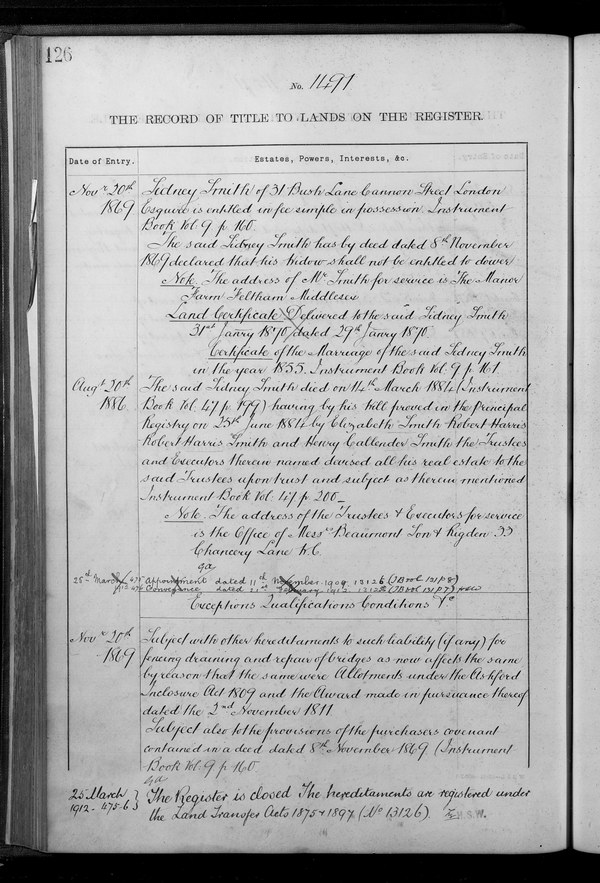 126
No. 1491
THE RECORD OF TITLE TO LANDS ON THE REGISTER.
Date of Entry. Estates, Powers, Interests, &c.
Novr 20th Sidney Smith of 31 Bush Lane Cannon Street London
1869 Esquire is entitled in fee simple in possession. Instrument
Book Vol. 9 p 160.
The said Sidney Smith has by deed dated 8th November
1869 declared that his Widow shall not be entitled to dower
Note. The address of Mr Smith for service is The Manor
Farm Feltham Middlesex
Land Certificate Delivered to the said Sidney Smith
31st Janry 1870 dated 29th Janry 1870.
Certificate of the Marriage of the said Sidney Smith
in the year 1855. Instrument Book Vol. 9 p 161
Augt 20th The said Sidney Smith died on 14th March 1884 (Instrument
1886 Book Vol. 47 p 199) having by his Will proved in the Principal
Registry on 25th June 1884 by Elizabeth Smith Robert Harris
Robert Harris Smith and Henry Callender Smith the Trustees
and Executors therein named devised all his real estate to the
said Trustees upon trust and subject as therein mentioned
Instrument Book Vol. 47 p 200
Note. The address of the Trustees & Executors for service
is the Office of Messrs Beaumont Son & Rigden 33
Chancery Lane W.C.
25th March 1912 475 Appointment dated 11th November 1909 13126 (IBool 131 p 8)
476 Conveyance dated 21st February 1912 13126 (IBool 131 p 7)
Exceptions Qualifications Conditions &c
Novr 20th Subject with other hereditaments to such liability (if any) for
1869 fencing draining and repair of bridges as now affects the same
by reason that the same were Allotments under the Ashford
Inclosure Act 1809 and the Award made in pursuance thereof
dated the 2nd November 1811
Subject also to the provisions of the purchasers covenant
contained in a deed dated 8th November 1869 (Instrument
Book Vol. 9 p 160
25 March The Register is closed The hereditaments are registered under
1912 - 475-6 the Land Transfer Acts 1875 & 1897 (No 13126) H.S.W.